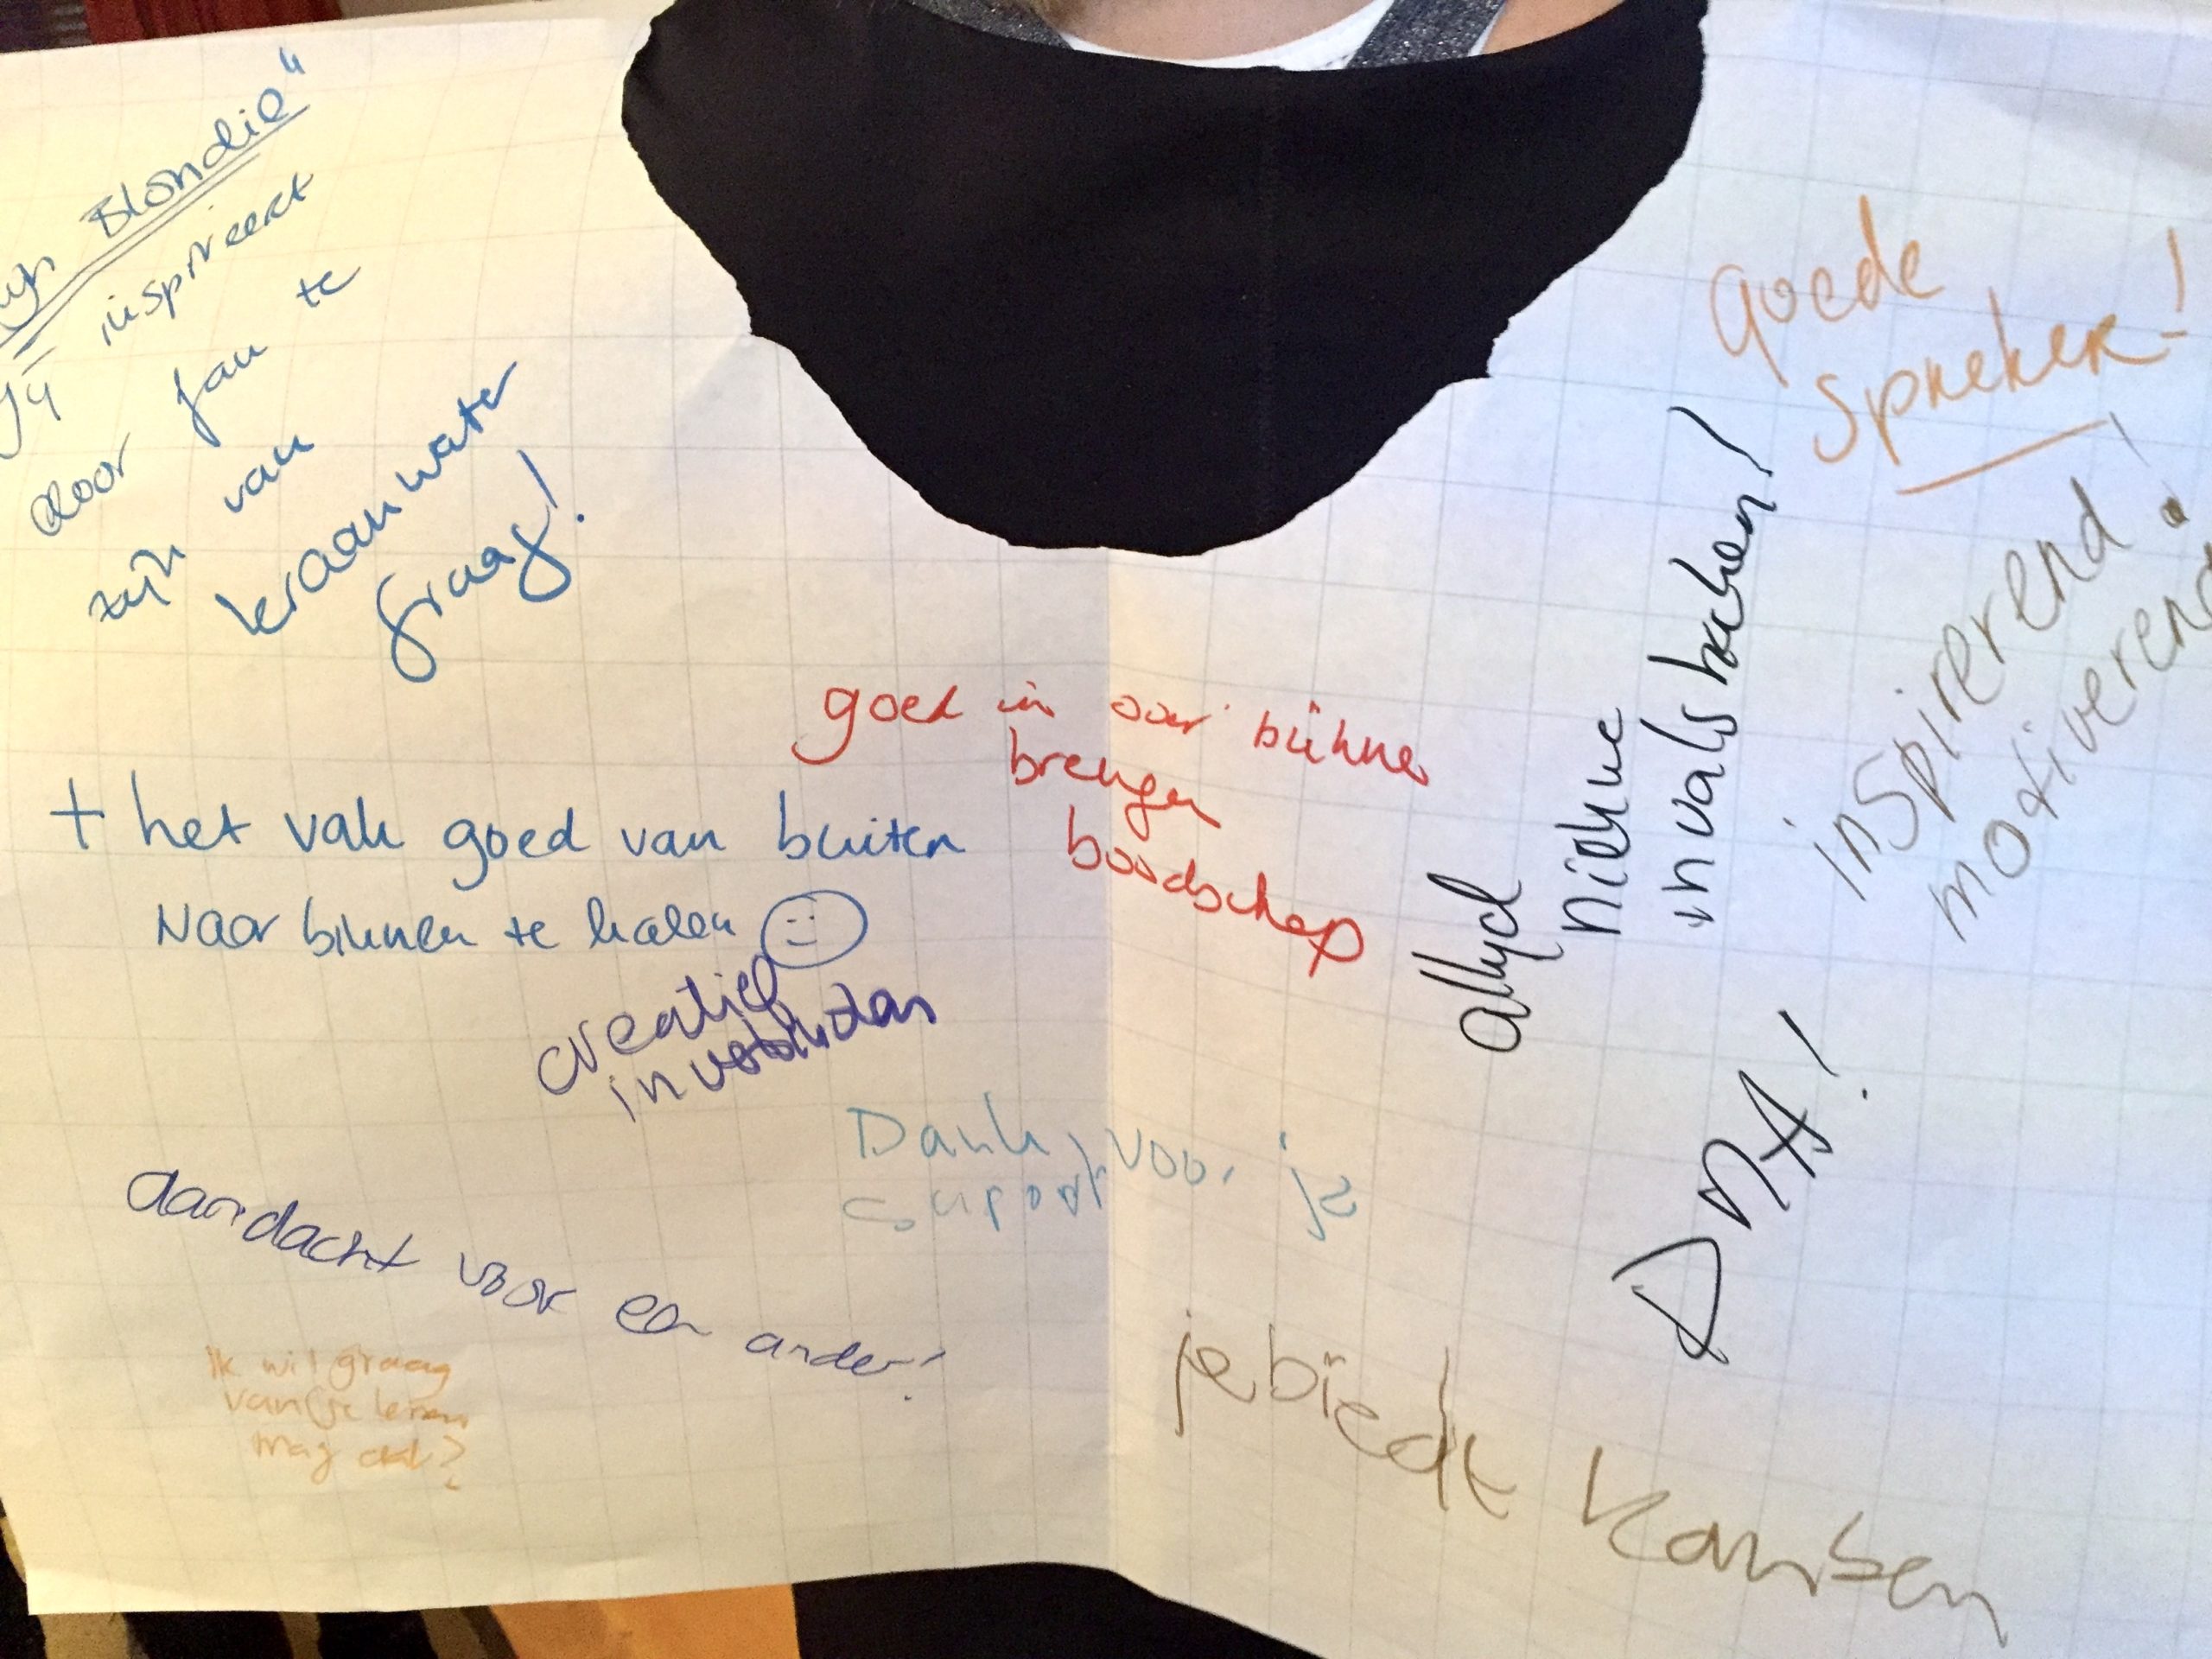 Blondie"
Jij inspireert
door fan te
zijn van
kraanwater
graag!
goed in over bühne
brengen
boodschap
+ het vak goed van buiten
Naar binnen te halen
creatief
in
Dank voor je
support
aandacht voor een ander!
Ik wil graag
van je leren
mag dat?
goede
spreker!
inspirerend!
motiverend
altijd
nieuwe
invalshoeken!
DNA!
je biedt kansen